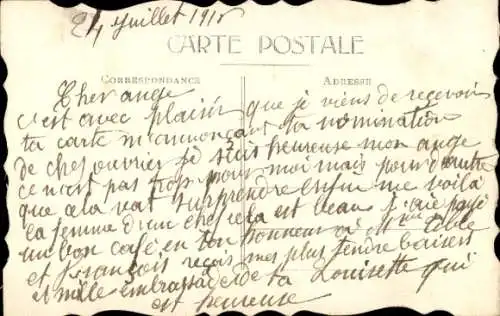 24 Juillet 1915
CARTE POSTALE
CORRESPONDANCE
ADRESSE
Cher ange
c'est avec plaisir que je viens de recevoir
ta carte m'annonçant ta nomination
de chef ouvrier je suis heureuse mon ange
ce n'est pas trop pour moi mais pour d'autre
que cela vat surprendre enfin me voilà
la femme d'un chef cela est beau j'ai payé
un bon café en ton honneur à
et François reçois mes plus tendre baisers
et mille embrassade de ta Louisette qui
est heureuse